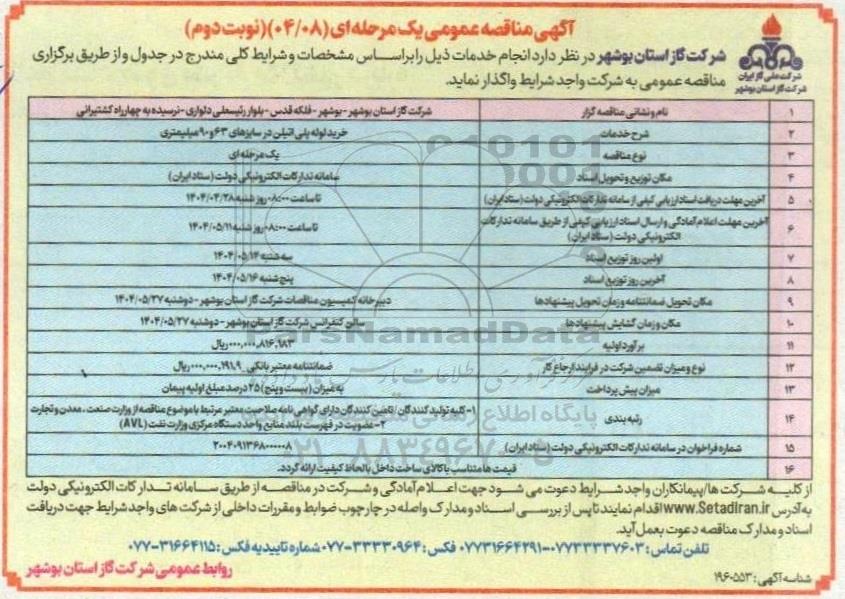 آگهی مناقصه عمومی یک مرحله ای (۰۴/۰۸) (نوبت دوم)
شرکت ملی گاز ایران
شرکت گاز استان بوشهر
شرکت گاز استان بوشهر در نظر دارد انجام خدمات ذیل را براساس مشخصات و شرایط کلی مندرج در جدول و از طریق برگزاری
مناقصه عمومی به شرکت واجد شرایط واگذار نماید.
۱ نام و نشانی مناقصه گزار شرکت گاز استان بوشهر - بوشهر - فلکه قدس - بلوار رئیسعلی دلواری - نرسیده به چهارراه کشتیرانی
۲ شرح خدمات خرید لوله پلی اتیلن در سایزهای ۶۳ و ۹۰ میلیمتری
۳ نوع مناقصه یک مرحله ای
۴ مکان توزیع و تحویل اسناد سامانه تدارکات الکترونیکی دولت (ستاد ایران)
۵ آخرین مهلت دریافت اسناد ارزیابی کیفی از سامانه تدارکات الکترونیکی دولت (ستاد ایران) تا ساعت ۰۸:۰۰ روز شنبه ۱۴۰۴/۰۴/۲۸
۶ آخرین مهلت اعلام آمادگی و ارسال اسناد ارزیابی کیفی از طریق سامانه تدارکات
الکترونیکی دولت (ستاد ایران) تا ساعت ۰۸:۰۰ روز شنبه ۱۴۰۴/۰۵/۱۱
۷ اولین روز توزیع اسناد سه شنبه ۱۴۰۴/۰۵/۱۴
۸ آخرین روز توزیع اسناد پنج شنبه ۱۴۰۴/۰۵/۱۶
۹ مکان تحویل ضمانتنامه و زمان تحویل پیشنهادها دبیرخانه کمیسیون مناقصات شرکت گاز استان بوشهر - دوشنبه ۱۴۰۴/۰۵/۲۷
۱۰ مکان و زمان گشایش پیشنهادها سالن کنفرانس شرکت گاز استان بوشهر - دوشنبه ۱۴۰۴/۰۵/۲۷
۱۱ برآورد اولیه ۱۸۳,۸۱۶,۰۰۰,۰۰۰ ریال
۱۲ نوع و میزان تضمین شرکت در فرایند ارجاع کار ضمانتنامه معتبر بانکی ۹,۱۹۱,۰۰۰,۰۰۰ ریال
۱۳ میزان پیش پرداخت به میزان (بیست و پنج) ۲۵ درصد مبلغ اولیه پیمان
۱۴ رتبه بندی ۱- کلیه تولید کنندگان / تامین کنندگان دارای گواهی نامه صلاحیت معتبر مرتبط با موضوع مناقصه از وزارت صنعت، معدن و تجارت
۲- عضویت در فهرست بلند منابع واحد دستگاه مرکزی وزارت نفت (AVL)
۱۵ شماره فراخوان در سامانه تدارکات الکترونیکی دولت (ستاد ایران) ۲۰۰۴۰۹۱۳۶۸۰۰۰۰۰۸
۱۶ قیمت ها متناسب با کالای ساخت داخل با لحاظ کیفیت ارائه گردد.
از کلیه شرکت ها/پیمانکاران واجد شرایط دعوت می شود جهت اعلام آمادگی و شرکت در مناقصه از طریق سامانه تدارکات الکترونیکی دولت
به آدرس www.SetadIran.ir اقدام نمایند تا پس از بررسی اسناد و مدارک واصله در چارچوب ضوابط و مقررات داخلی از شرکت های واجد شرایط جهت دریافت
اسناد و مدارک مناقصه دعوت بعمل آید.
تلفن تماس: ۰۷۷۳۳۳۳۷۶۰۳-۰۷۷۳۱۶۶۴۲۹۱ فکس: ۳۳۳۳۰۹۶۴-۰۷۷ شماره تاییدیه فکس: ۳۱۶۶۴۱۱۵-۰۷۷
شناسه آگهی: ۱۹۶۰۵۵۳
روابط عمومی شرکت گاز استان بوشهر
ParsNamadData
پایگاه اطلاع رسانی
۰۲۱-۸۸۳۴۹۶۷۰-۵